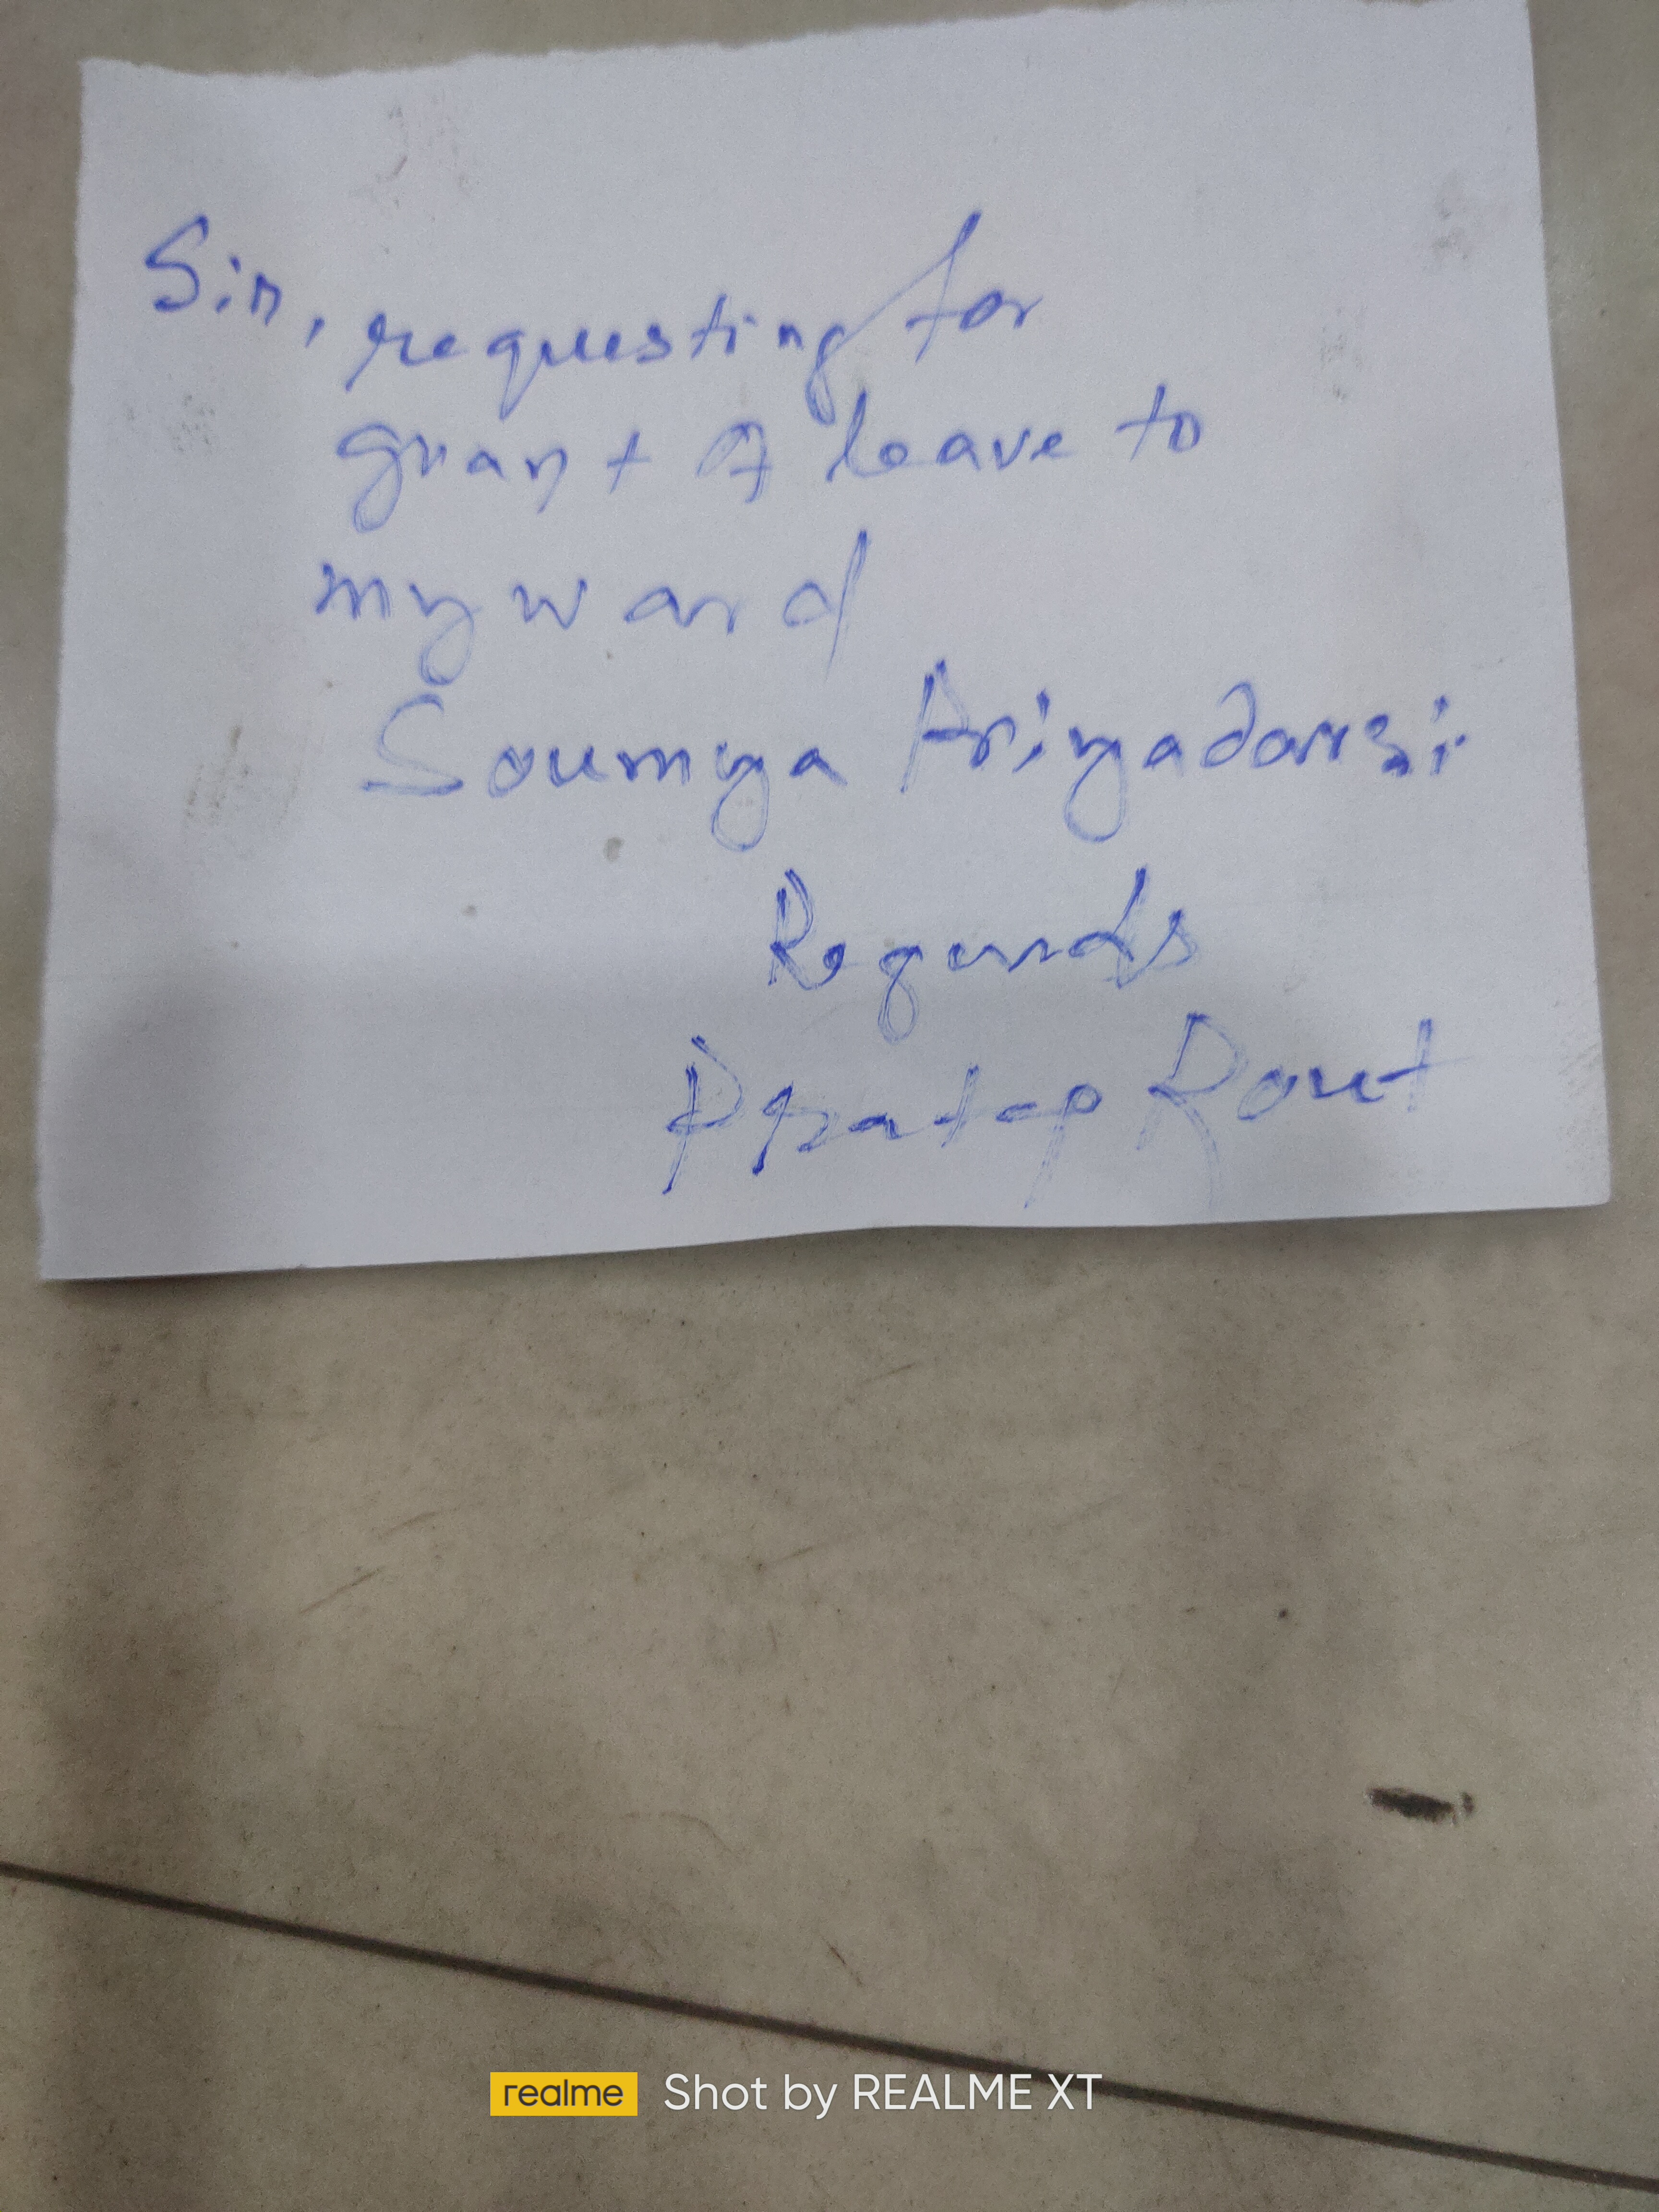 Sir, requesting for
grant of leave to
my ward
Soumya Priyadarsi.
Regards
Pratap Rout
realme Shot by REALME XT